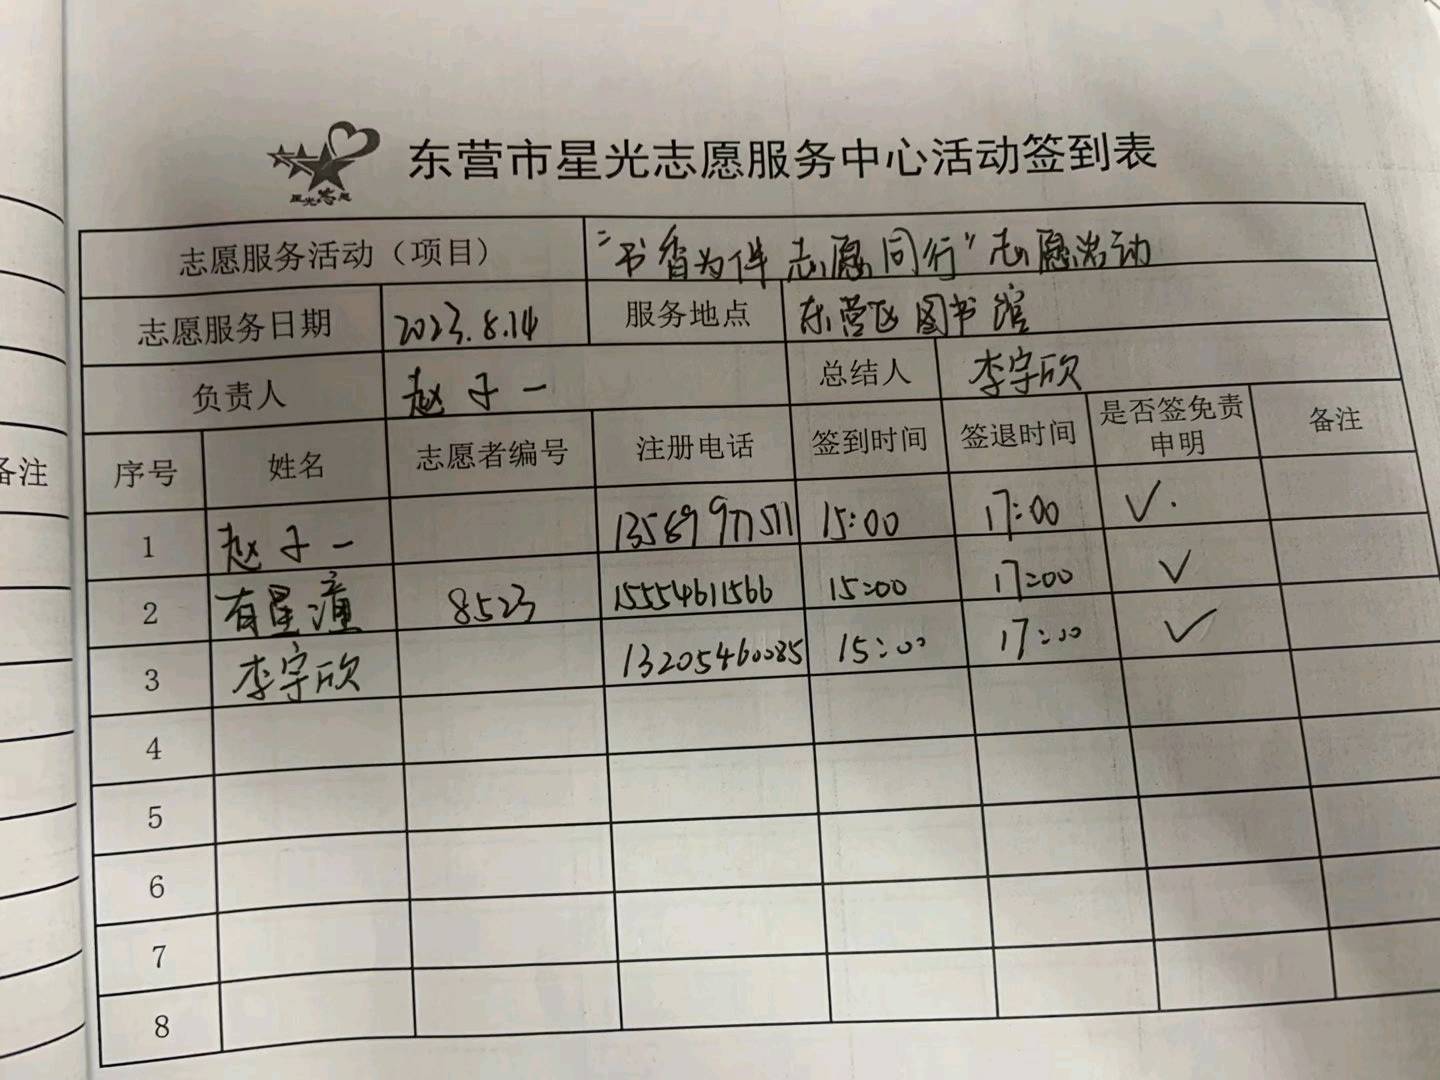 星光志愿
东营市星光志愿服务中心活动签到表
志愿服务活动（项目） "书香为伴 志愿同行"志愿活动
志愿服务日期 2023.8.14 服务地点 东营区图书馆
负责人 赵子一 总结人 李宇欣
序号 姓名 志愿者编号 注册电话 签到时间 签退时间 是否签免责申明 备注
1 赵子一 13589977511 15:00 17:00 ✓
2 有星潼 8523 15554611566 15:00 17:00 ✓
3 李宇欣 13205460085 15:00 17:00 ✓
4
5
6
7
8
备注